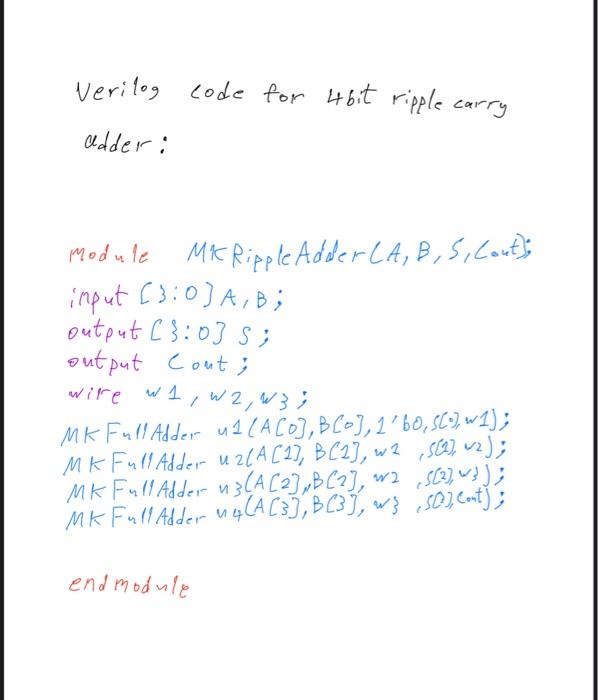 Verilog code for 4bit ripple carry
adder:
module MKRippleAdder(A, B, S, Cout);
input [3:0] A, B;
output [3:0] S;
output Cout;
wire w1, w2, w3;
MKFullAdder u1(A[0], B[0], 1'b0, S[0], w1);
MKFullAdder u2(A[1], B[1], w2, S[1], w2);
MKFullAdder u3(A[2], B[2], w2, S[2], w3);
MKFullAdder u4(A[3], B[3], w3, S[3], Cout);
endmodule